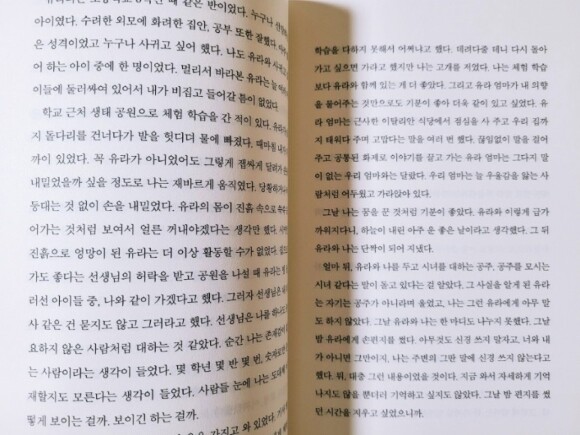 때 같은 반이었다. 누구나
아이였다. 수려한 외모에 화려한 집안, 공부 또한 잘했다.
은 성격이었고 누구나 사귀고 싶어 했다. 나도 유라와
어 하는 아이 중에 한 명이었다. 멀리서 바라본 유라는 늘
이들에 둘러싸여 있어서 내가 비집고 들어갈 틈이 없었다.
학교 근처 생태 공원으로 체험 학습을 간 적이 있다. 유라
지 돌다리를 건너다가 발을 헛디뎌 물에 빠졌다. 때마침 내가
까이 있었다. 꼭 유라가 아니었어도 그렇게 잽싸게 달려가
내밀었을까 싶을 정도로 나는 재바르게 움직였다. 당황하거나
등대는 것 없이 손을 내밀었다. 유라의 몸이 진흙 속으로
어가는 것처럼 보여서 얼른 꺼내야겠다는 생각만 했다.
진흙으로 엉망이 된 유라는 더 이상 활동할 수가 없었다.
가도 좋다는 선생님의 허락을 받고 공원을 나설 때 유라는
러선 아이들 중, 나와 같이 가겠다고 했다. 그러자 선생님은
사 같은 건 묻지도 않고 그러라고 했다. 선생님은 나를 하나도
요하지 않은 사람처럼 대하는 것 같았다. 순간 나는 존재감이
는 사람이라는 생각이 들었다. 몇 학년 몇 반 몇 번, 숫자로만
재할지도 모른다는 생각이 들었다. 사람들 눈에 나는 도대체
떻게 보이는 걸까. 보이긴 하는 걸까.
가지고 와 있었다.
학습을 다하지 못해서 어쩌냐고 했다. 데려다줄 테니 다시 돌아
가고 싶으면 가라고 했지만 나는 고개를 저었다. 나는 체험 학습
보다 유라와 함께 있는 게 더 좋았다. 그리고 유라 엄마가 내 의향
을 물어주는 것만으로도 기분이 좋아 더욱 같이 있고 싶었다. 유
라 엄마는 근사한 이탈리안 식당에서 점심을 사 주고 우리 집까
지 태워다 주며 고맙다는 말을 여러 번 했다. 끊임없이 말을 걸어
주고 공통된 화제로 이야기를 끌고 가는 유라 엄마는 그다지 말
이 없는 우리 엄마와는 달랐다. 우리 엄마는 늘 우울감을 앓는 사
람처럼 어두웠고 가라앉아 있었다.
그날 나는 꿈을 꾼 것처럼 기분이 좋았다. 유라와 이렇게 급가
까워지다니, 하늘이 내린 아주 운 좋은 날이라고 생각했다. 그 뒤
유라와 나는 단짝이 되어 지냈다.
얼마 뒤, 유라와 나를 두고 시녀를 대하는 공주, 공주를 모시는
시녀 같다는 말이 돌고 있다는 걸 알았다. 그 사실을 알게 된 유라
는 자기는 공주가 아니라며 울었고, 나는 그런 유라에게 아무 말
도 하지 않았다. 그날 유라와 나는 한 마디도 나누지 못했다. 그날
밤 유라에게 손편지를 썼다. 아무것도 신경 쓰지 말자고, 너와 내
가 아니면 그만이지, 나는 주변의 그딴 말에 신경 쓰지 않는다고
했다. 뭐, 대충 그런 내용이었을 것이다. 지금 와서 자세하게 기억
나지도 않을 뿐더러 기억하고 싶지도 않았다. 그날 밤 편지를 썼
던 시간을 지우고 싶었으니까.